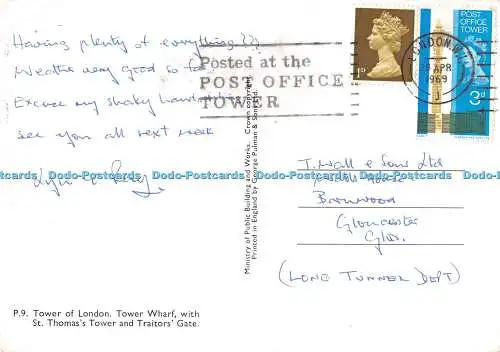 Having plenty of everything ??
Weather very good so far
Excuse my shaky handwriting
see you all next week
Posted at the
POST OFFICE
TOWER
1D
LONDON.W.1
APR
1969
POST
OFFICE
TOWER
3d
Ministry of Public Building and Works. Crown copyright
Printed in England by George Pulman & Sons Ltd.
T. Wall & Sons Ltd
House
Barnwood
Gloucester
Glos.
(LONG TUNNEL DEPT)
Dodo-Postcards Dodo-Postcards Dodo-Postcards Dodo-Postcards Dodo-Postcards
P.9. Tower of London. Tower Wharf, with
St. Thomas's Tower and Traitors' Gate.